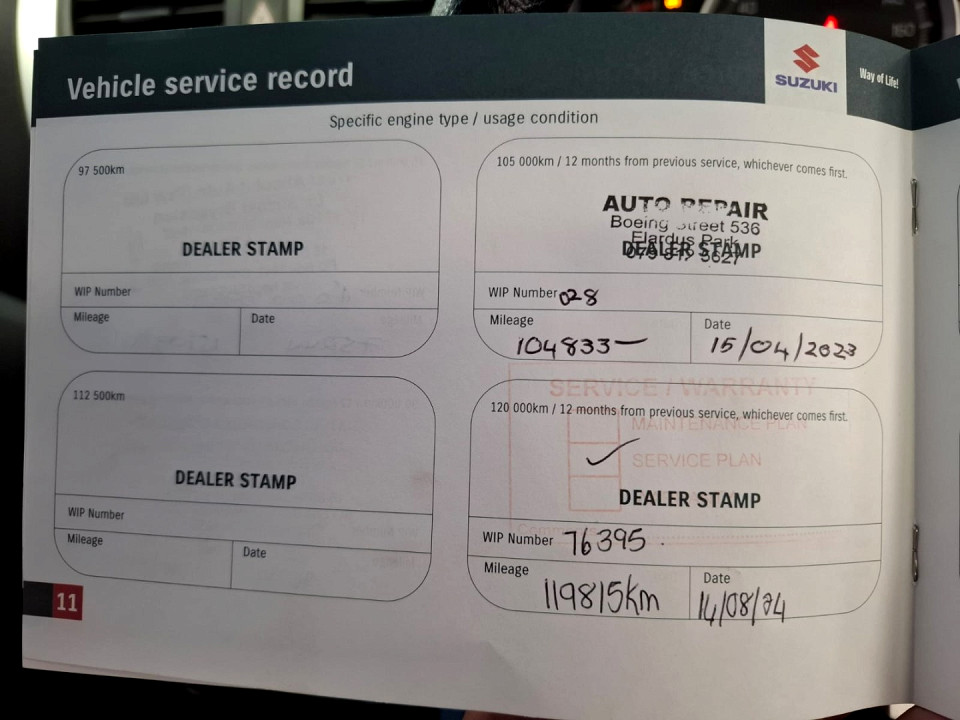 Vehicle service record
SUZUKI
Way of Life!
Specific engine type / usage condition
97 500km
DEALER STAMP
WIP Number
Mileage
Date
105 000km / 12 months from previous service, whichever comes first.
AUTO REPAIR
Boeing Street 536
Elardus Park
DEALER STAMP
WIP Number 028
Mileage
104833
Date
15/04/2023
112 500km
DEALER STAMP
WIP Number
Mileage
Date
SERVICE / WARRANTY
120 000km / 12 months from previous service, whichever comes first.
MAINTENANCE PLAN
SERVICE PLAN
DEALER STAMP
WIP Number 76395
Mileage
119815km
Date
14/08/24
11